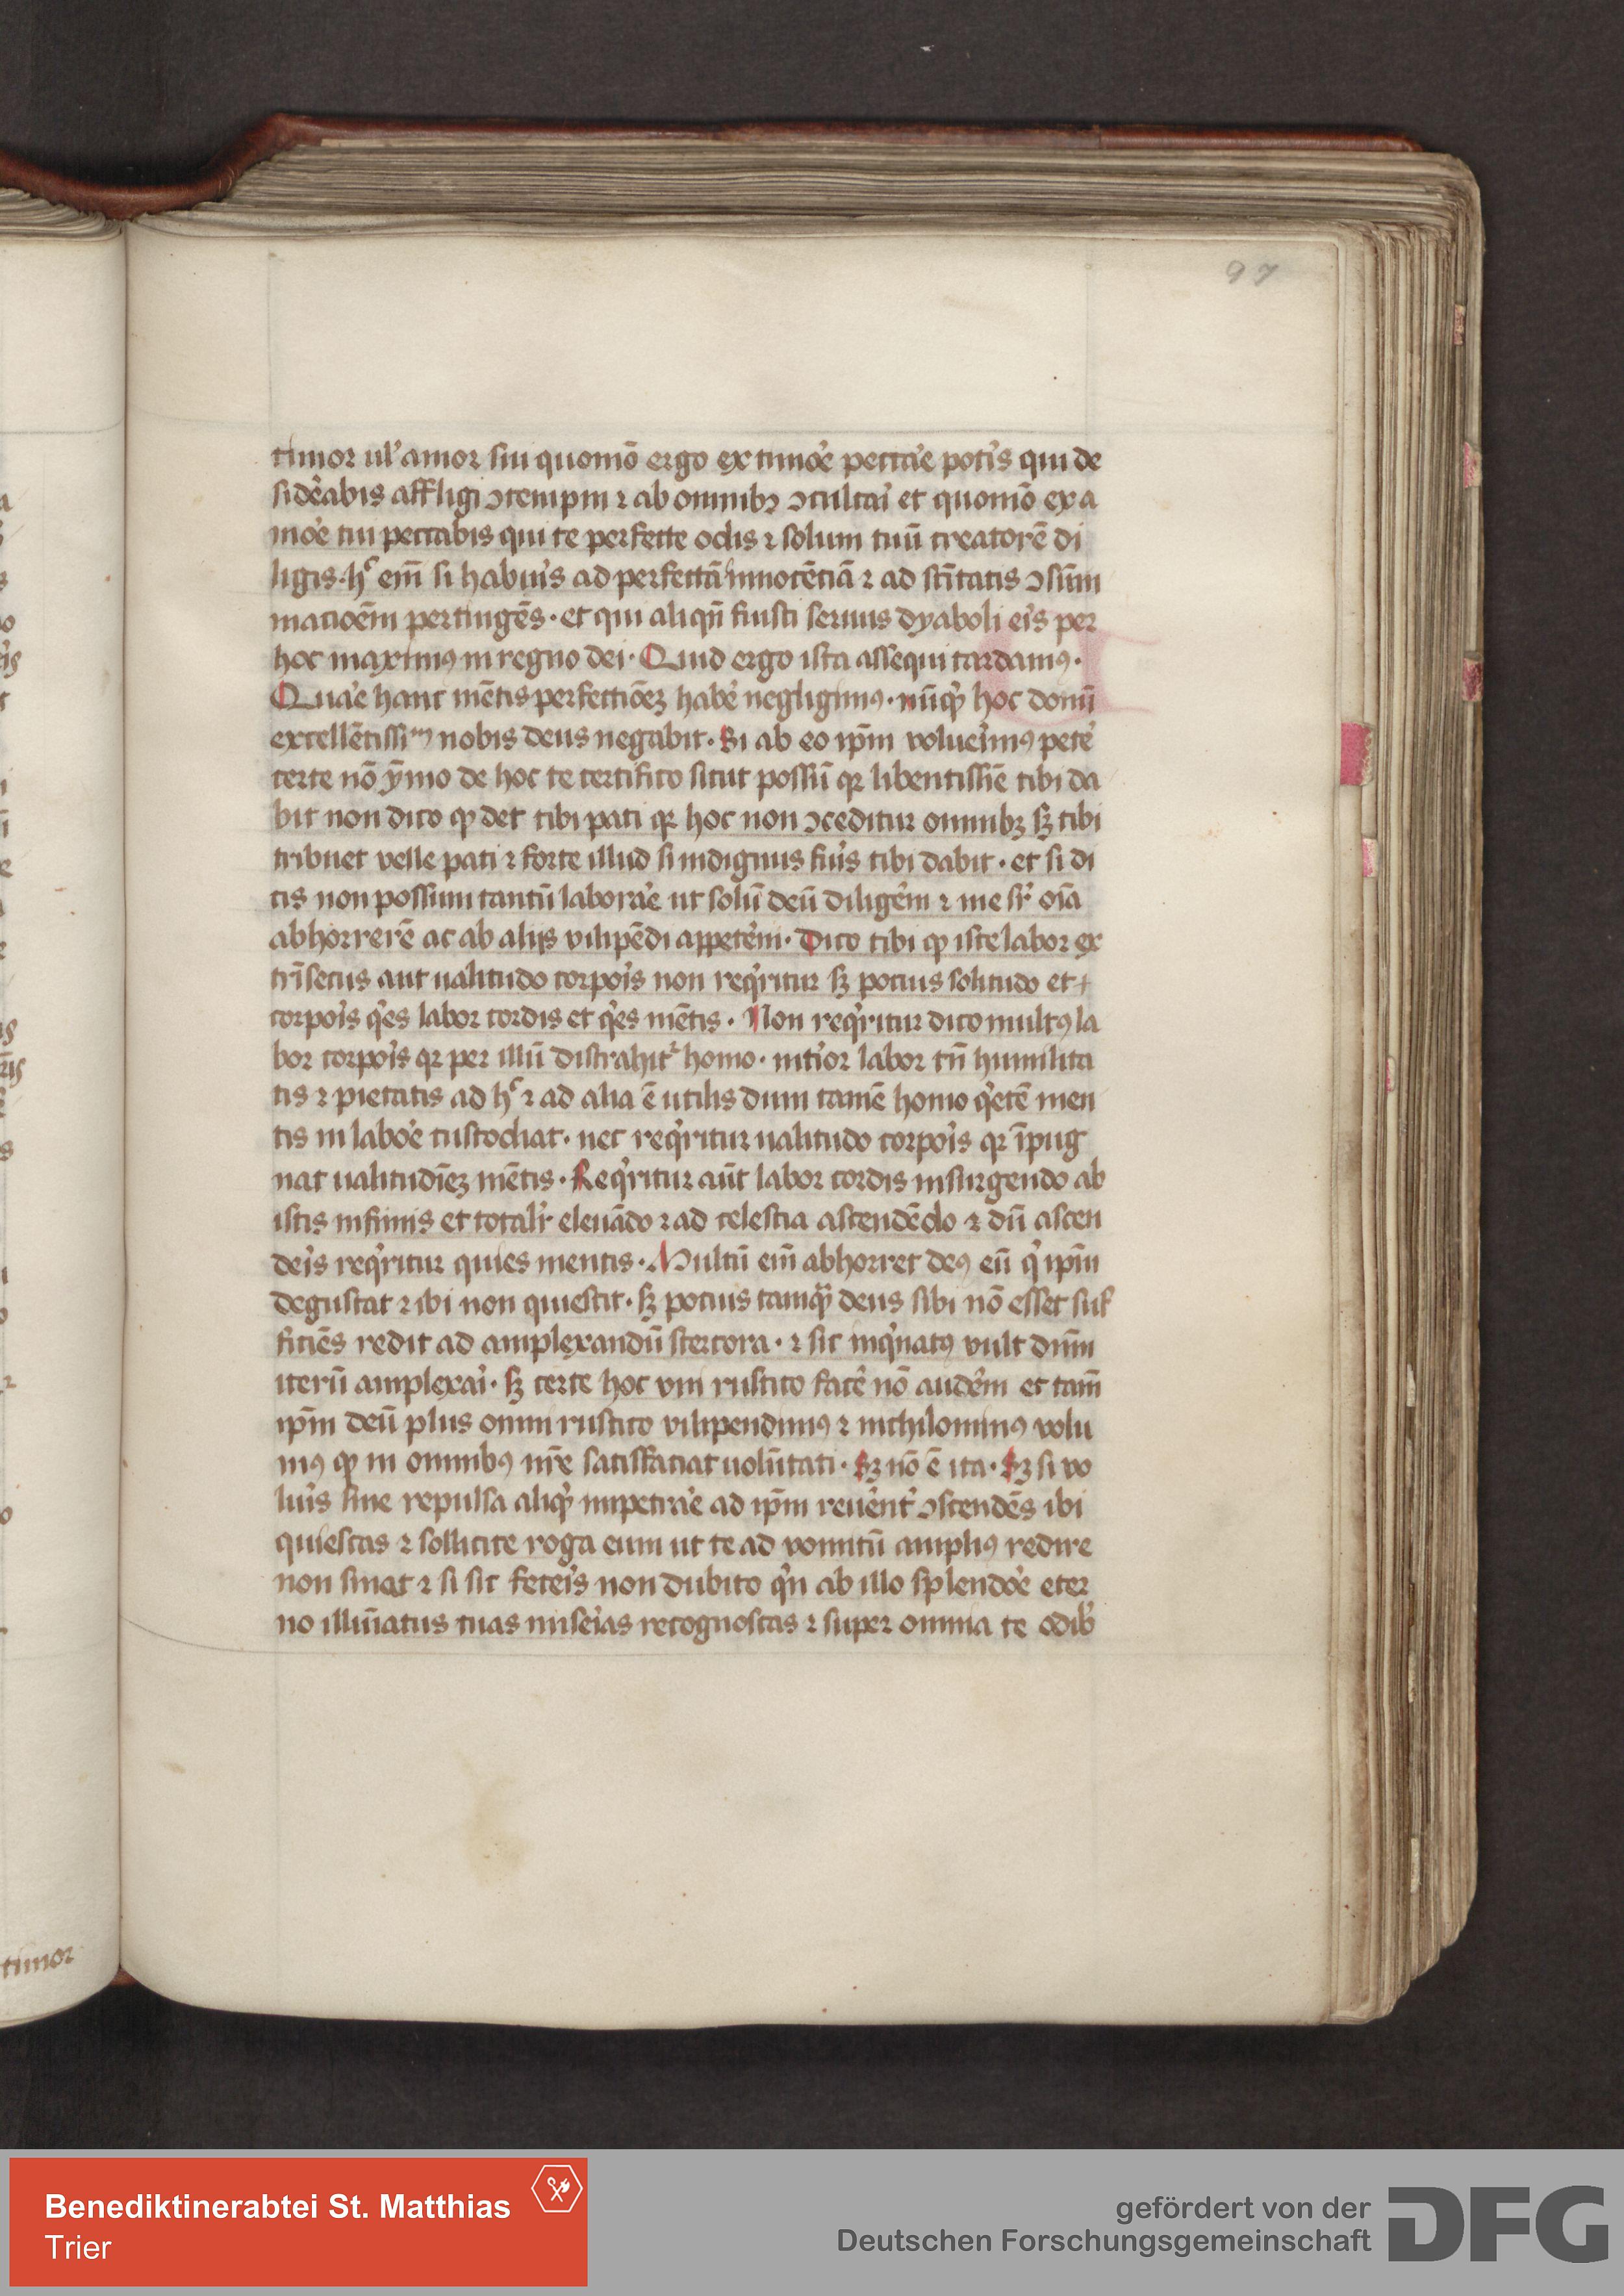 97
timor ul' amor sui quomō ergo ex timoe̾ pecca̾e potīs qui de
side̾abis affligi ↄtempni ⁊ ab omnibꝫ ↄculcai̾ et quomō ex a
moe̾ tui peccabis qui te perfecte odis ⁊ solum tuū creatorē di
ligis. hᶜ eīm si habui̾s ad perfectā innocēciā ⁊ ad sc̄itatis ↄsūm
matioēm pertingēs. et qui aliqn̄ fuisti seruus dyaboli ei̾s per
hoc maximꝰ in regno dei. Quid ergo ista assequi tardamꝰ.
Qua̾e hanc mētis perfectiōeꝫ habe̾ negligimꝰ. nūqͥd hoc donū
excellētissiᵐ nobis deus negabit. Si ab eo ip̄m voluei̾mꝰ pete̾
certe nō ȳmo de hoc te certifico sicut possū qꝛ libentissīe tibi da
bit non dico ꝙ det tibi pati qꝛ hoc non ↄceditur omnibꝫ sꝫ tibi
tribuet velle pati ⁊ forte illud si indignus fui̾s tibi dabit. et si di
cis non possum tantū labora̾e ut solū deū dilige̾m ⁊ me sr̾ oīa
abhorrerē ac ab alijs vilipēdi appete̾m. Dico tibi ꝙ iste labor ex
tr̄isecus aut ualitudo corpoi̾s non reqͥritur sꝫ potius solitudo et
corpoi̾s qͥes labor cordis et qͥes mētis. Non reqͥritur dico multꝰ la
bor corpoi̾s qꝛ per illū distrahitᷣ homo. inti̾or labor tn̄ humilita
tis ⁊ pietatis ad hᶜ ⁊ ad alia ē utilis dum tamē homo qͥetē men
tis in laboe̾ custodiat. nec reqͥritur ualitudo corpoi̾s qꝛ īpug
nat ualitudīeꝫ mētis. Reqͥritur aūt labor cordis insurgendo ab
istis infimis et totalr̾ eleuādo ⁊ ad celestia ascendēdo ⁊ dū ascen
dei̾s reqͥritur quies mentis. Multū eīm abhorret deꝰ eū qͥ ip̄m
degustat ⁊ ibi non quiescit. sꝫ potius tamqᷓ deus sibi nō esset suf
ficiēs redit ad amplexandū stercora. ⁊ sic inqͥnatꝰ vult dn̄m
iterū amplexai̾. sꝫ certe hoc vni rustico face̾ nō aude̾m et tam̄
ip̄m deū plus omni rustico vilipendimꝰ ⁊ nichilominꝰ volu
mꝰ ꝙ in omnibꝰ nr̄e satisfaciat uolūtati. Sꝫ nō ē ita. Sꝫ si vo
lui̾s sine repulsa aliqͥd impetra̾e ad ip̄m reue̾nt̾ ↄscendēs ibi
quiescas ⁊ sollicite roga eum ut te ad vomitū ampliꝰ redire
non sinat ⁊ si sic fecei̾s non dubito qͥn ab illo splendoe̾ eter
no illuīatus tuas misei̾as recognoscas ⁊ super omnia te odib̾
timor
Benediktinerabtei St. Matthias
Trier
gefördert von der
Deutschen Forschungsgemeinschaft
DFG